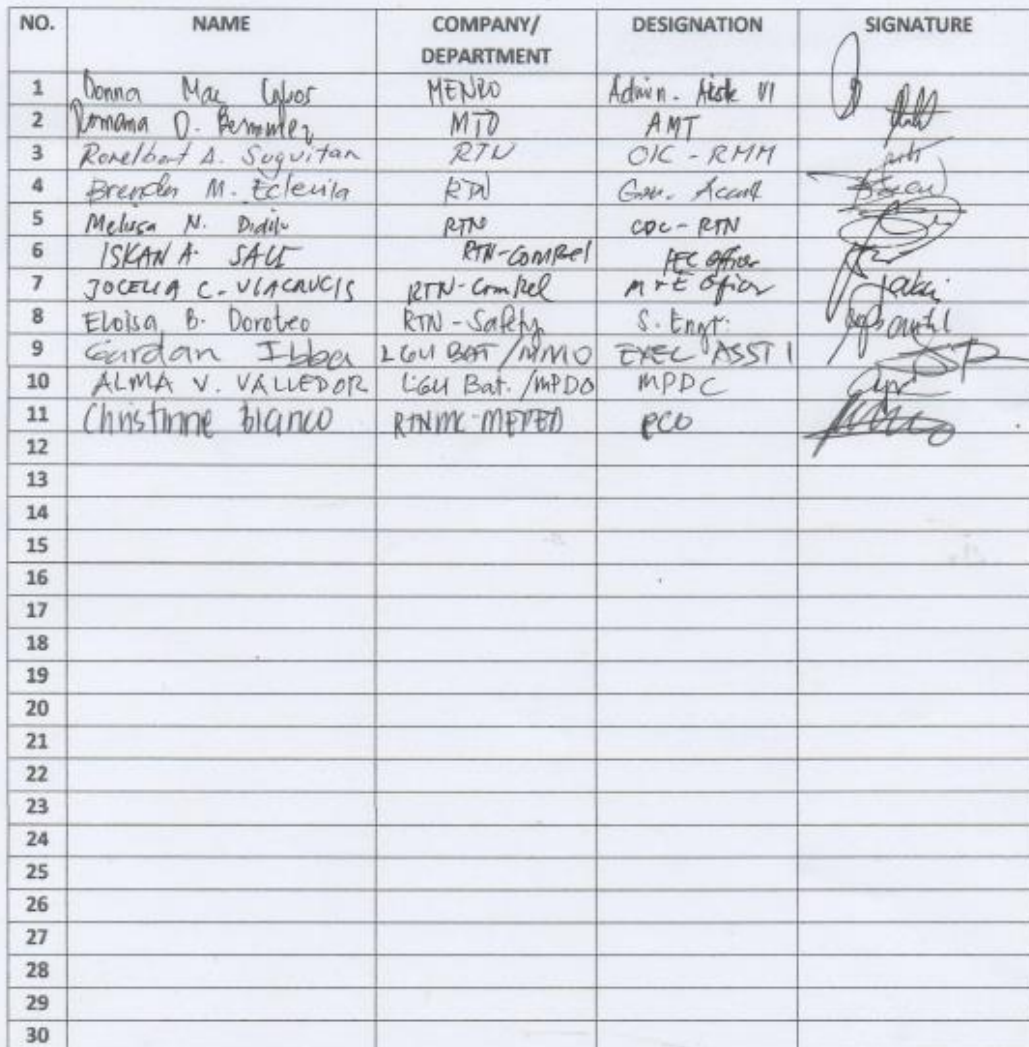 NO. NAME COMPANY/ DESIGNATION SIGNATURE
DEPARTMENT
1 Donna Mae MENRO Admin. VI
2 Romana D. Bermudez MTO AMT
3 Ronelbert A. Suguitan RTN OIC - RMM
4 Brenda M. Eclevia RTN Gen.
5 Melissa N. RTN COC - RTN
6 ISKAN A. SALI RTN-ComRel IEC Officer
7 JOCELIA C. VIACRUCIS RTN-ComRel M & E Officer
8 Eloisa B. Doroteo RTN - Safety S. Engr.
9 Gardan Ibba LGU BAT/MMO EXEC ASST I
10 ALMA V. VALLEDOR LGU Bat./MPDO MPDC
11 Christinne Blanco PCO
12
13
14
15
16
17
18
19
20
21
22
23
24
25
26
27
28
29
30